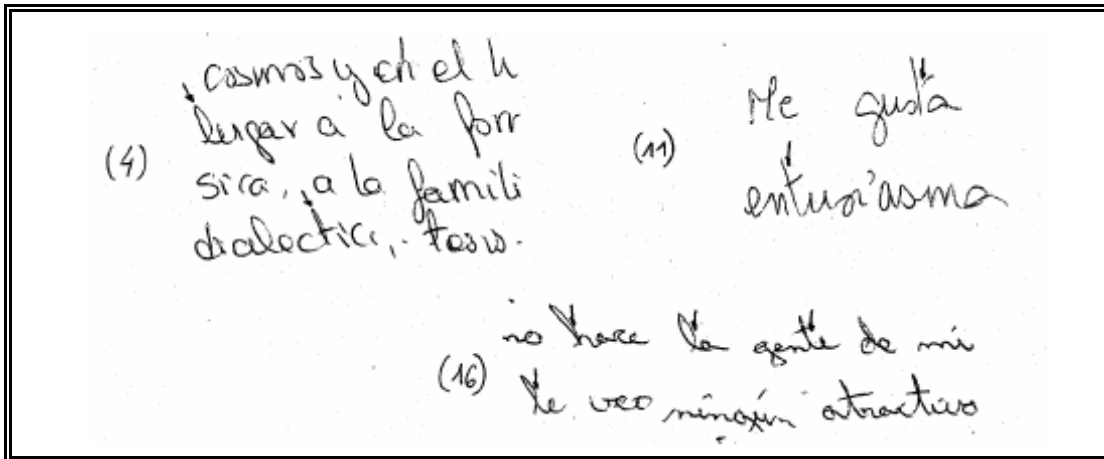 (4)
cosmos y en el h
lugar a la forr
sica, a la famili
dialectica, . tesis.
(11)
Me gusta
entusiasma
(16)
no hace la gente de mi
le veo ningún atractivo